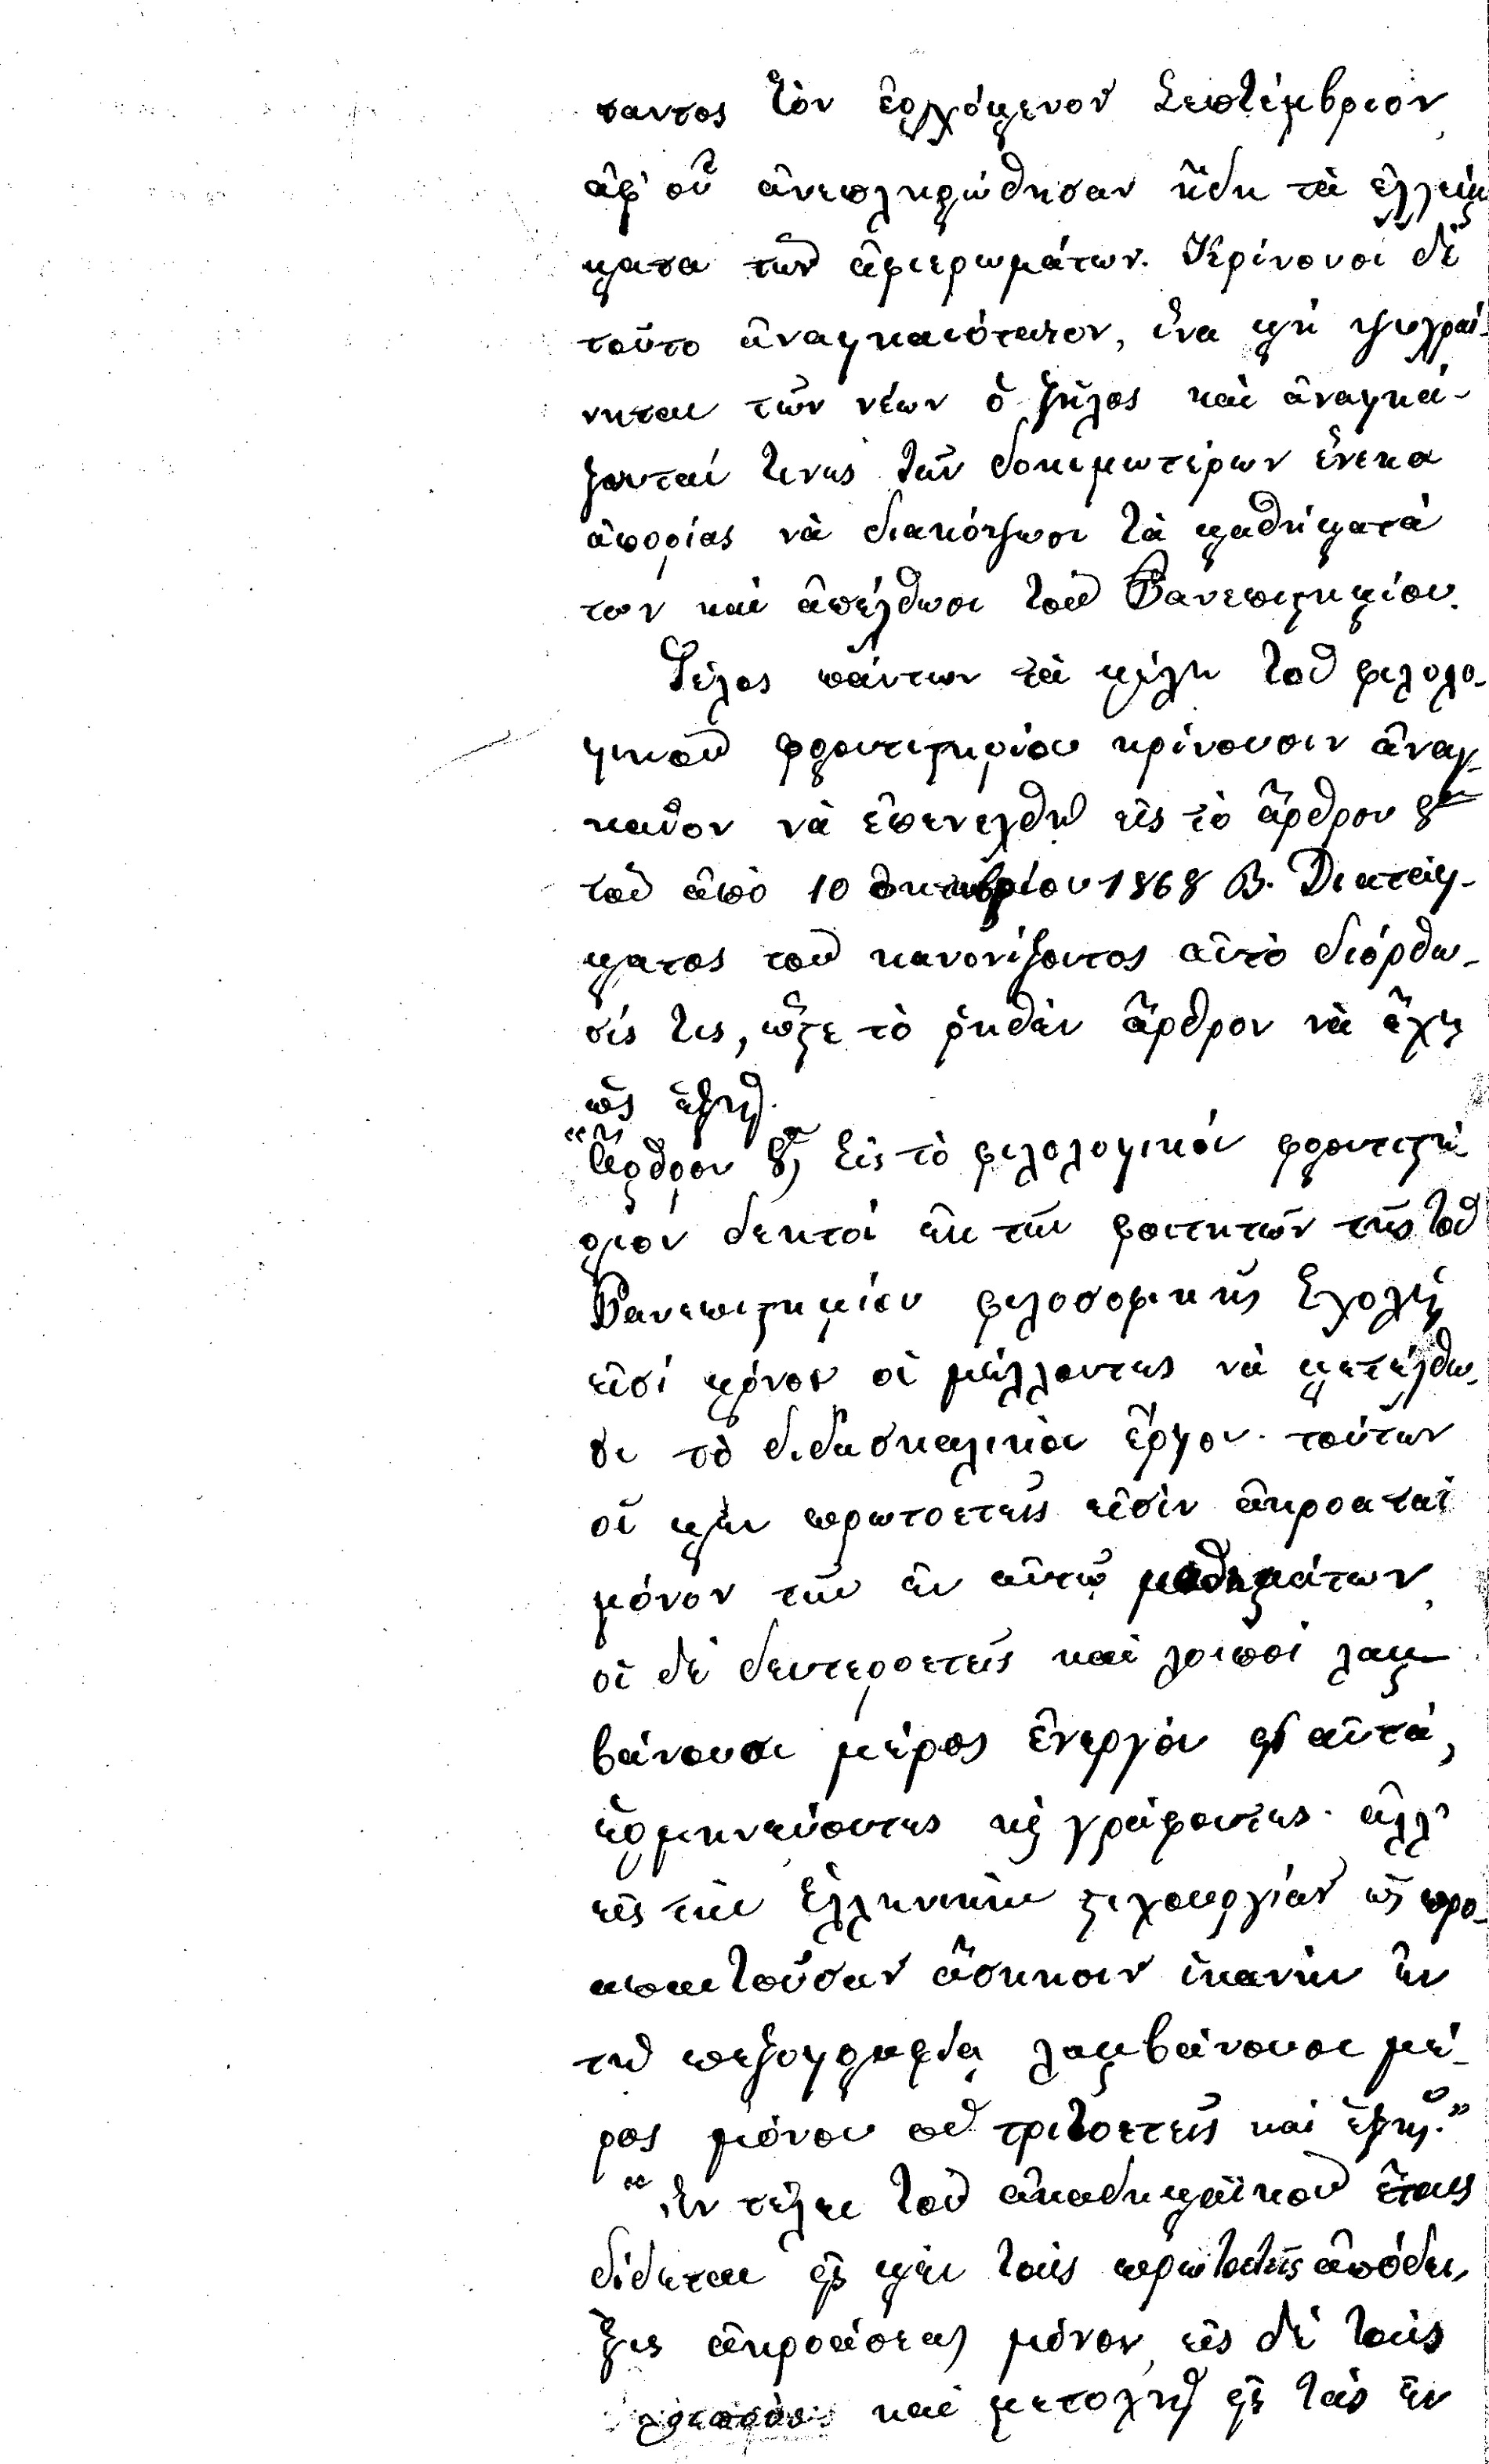 σαντος τὸν ἐρχόμενον Σεπτέμβριον,
ἀφ' οὗ ἀνεπληρώθησαν ἤδη τὰ ἐλλείμ
ματα τῶν ἀφιερωμάτων. Κρίνουσι δὲ
τοῦτο ἀναγκαιότατον, ἵνα μὴ ψυχραί-
νηται τῶν νέων ὁ ζῆλος καὶ ἀναγκά-
ζωνταί τινες τῶν δοκιμωτέρων ἕνεκα
ἀπορίας νὰ διακόψωσι τὰ μαθήματά
των καὶ ἀπέλθωσι τοῦ Πανεπιστημίου.
Τέλος πάντων τὰ μέλη τοῦ φιλολο-
γικοῦ φροντιστηρίου κρίνουσιν ἀναγ-
καῖον νὰ ἐπενεχθῇ εἰς τὸ ἄρθρον 8ον
τοῦ ἀπὸ 10 Ὀκτωβρίου 1868 Β. Διατάγ-
ματος τοῦ κανονίζοντος αὐτὸ διόρθω-
σίς τις, ὥστε τὸ ῥηθὲν ἄρθρον νὰ ἔχῃ
ὡς ἑξῆς.
"Ἄρθρον 8) Εἰς τὸ φιλολογικὸν φροντιστή
ριον δεκτοὶ ἐκ τῶν φοιτητῶν τῆς τοῦ
Πανεπιστημίου φιλοσοφικῆς Σχολῆς
εἰσὶ μόνον οἱ μέλλοντες νὰ μετέλθω-
σι τὸ διδασκαλικὸν ἔργον· τούτων
οἱ μὲν πρωτοετεῖς εἰσὶν ἀκροαταὶ
μόνον τῶν ἐν αὐτῷ μαθημάτων,
οἱ δὲ δευτεροετεῖς καὶ λοιποὶ λαμ
βάνουσι μέρος ἐνεργὸν εἰς αὐτά,
ἑρμηνεύοντες καὶ γράφοντες· ἀλλ'
εἰς τὴν Ἑλληνικὴν στιχουργίαν ὡς προ-
απαιτοῦσαν ἄσκησιν ἱκανὴν ἐν
τῇ πεζογραφίᾳ λαμβάνουσι μέ-
ρος μόνον οἱ τριτοετεῖς καὶ ἑξῆς."
"Ἐν τέλει τοῦ ἀκαδημαϊκοῦ ἔτους
δίδεται εἰς μὲν τοὺς πρωτοετεῖς ἀπόδει-
ξις ἀκροάσεως μόνον, εἰς δὲ τοὺς
καὶ μετοχῆς εἰς τὰς ἐν